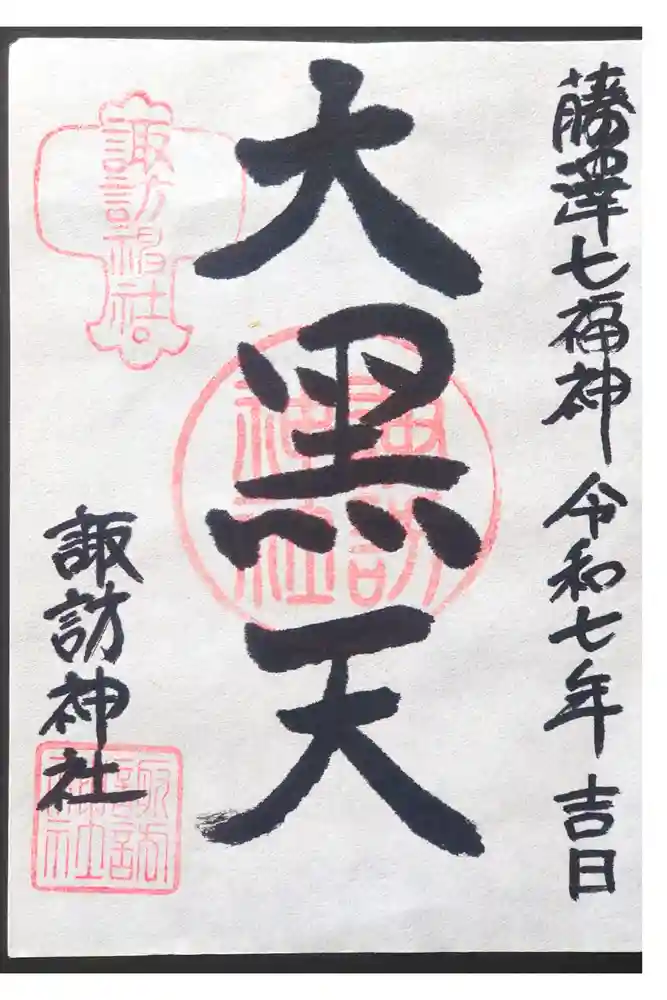 藤澤七福神 令和七年 吉日
大黒天
諏訪神社
諏訪神社
諏訪神社
諏訪神社